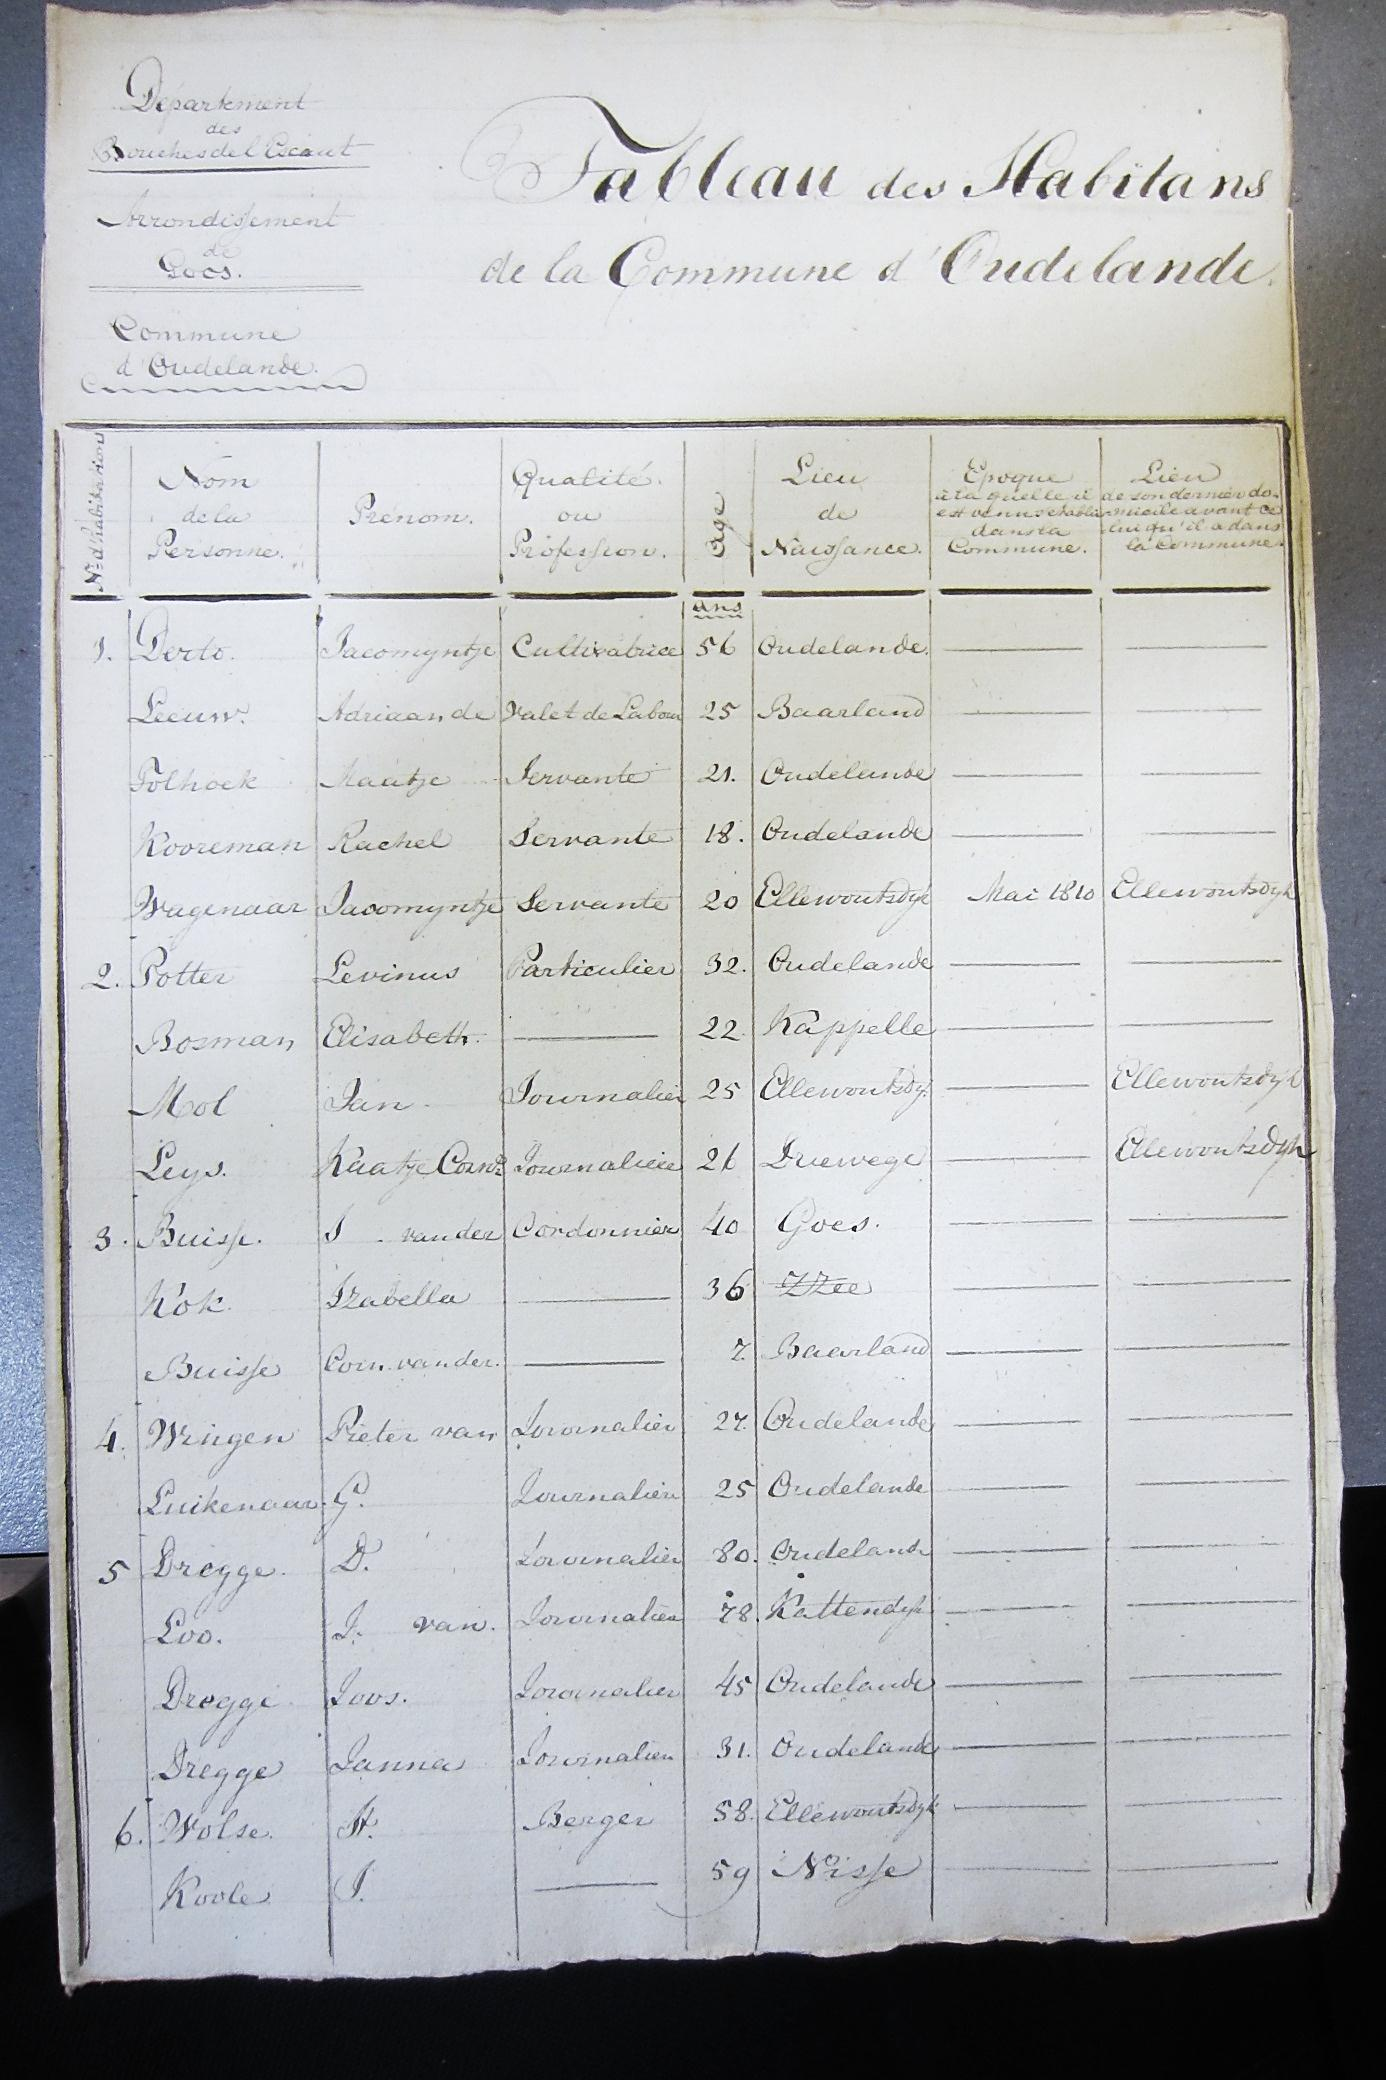 Departement
des
Bouches de l'Escaut
Arrondissement
de
Goes.
Commune
d'Oudelande.
Tableau des Habitans
de la Commune d'Oudelande.
No. d'habitation | Nom de la Personne. | Prénom. | Qualité ou Profession. | Age | Lieu de Naissance. | Epoque à la quelle il est venu s'etablir dans la Commune. | Lieu de son dernier domicile avant celui qu'il a dans la Commune.
ans
1. Derto. Jacomyntje Cultivatrice 56 Oudelande. — —
Leeuw. Adriaan de Valet de Labour 25 Baarland — —
Tolhoek Maatje Servante 21. Oudelande — —
Kooreman Rachel Servante 18. Oudelande — —
Wagenaar Jacomyntje Servante 20 Ellewoutsdyk Mai 1810 Ellewoutsdyk
2. Potter Levinus Particulier 32. Oudelande — —
Bosman Elisabeth. — 22 Kappelle — —
Mol Jan Journalier 25 Ellewoutsdy. — Ellewoutsdyk
Leys. Kaatje Corna Journaliere 26 Driewege — Ellewoutsdyk
3. Buisse. J. van der Cordonnier 40 Goes. — —
Kok Izabella — 36 ZZee — —
Buisse Corn. van der. — 7. Baarland — —
4. Wringen Pieter van Journalier 27. Oudelande — —
Luikenaar G. Journaliere 25 Oudelande — —
5 Dregge. D. Journalier 80. Oudelande — —
Loo. J. van. Journaliere 78. Kattendyk — —
Dregge Joos. Journalier 45 Oudelande — —
Dregge Janna Journaliere 31. Oudelande — —
6. Wolse. H. Berger 58. Ellewoutsdyk — —
Koole J. — 59 Nisse — —